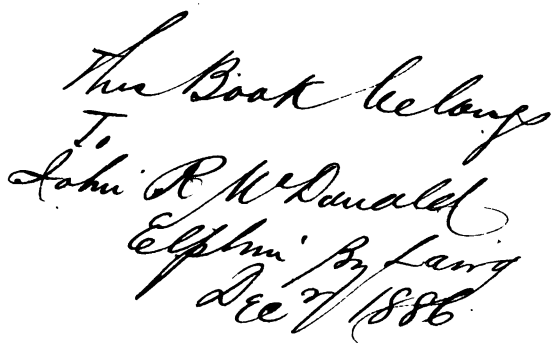 This Book belongs
To
John R McDonald
Elphin By Lairg
Dec 1886